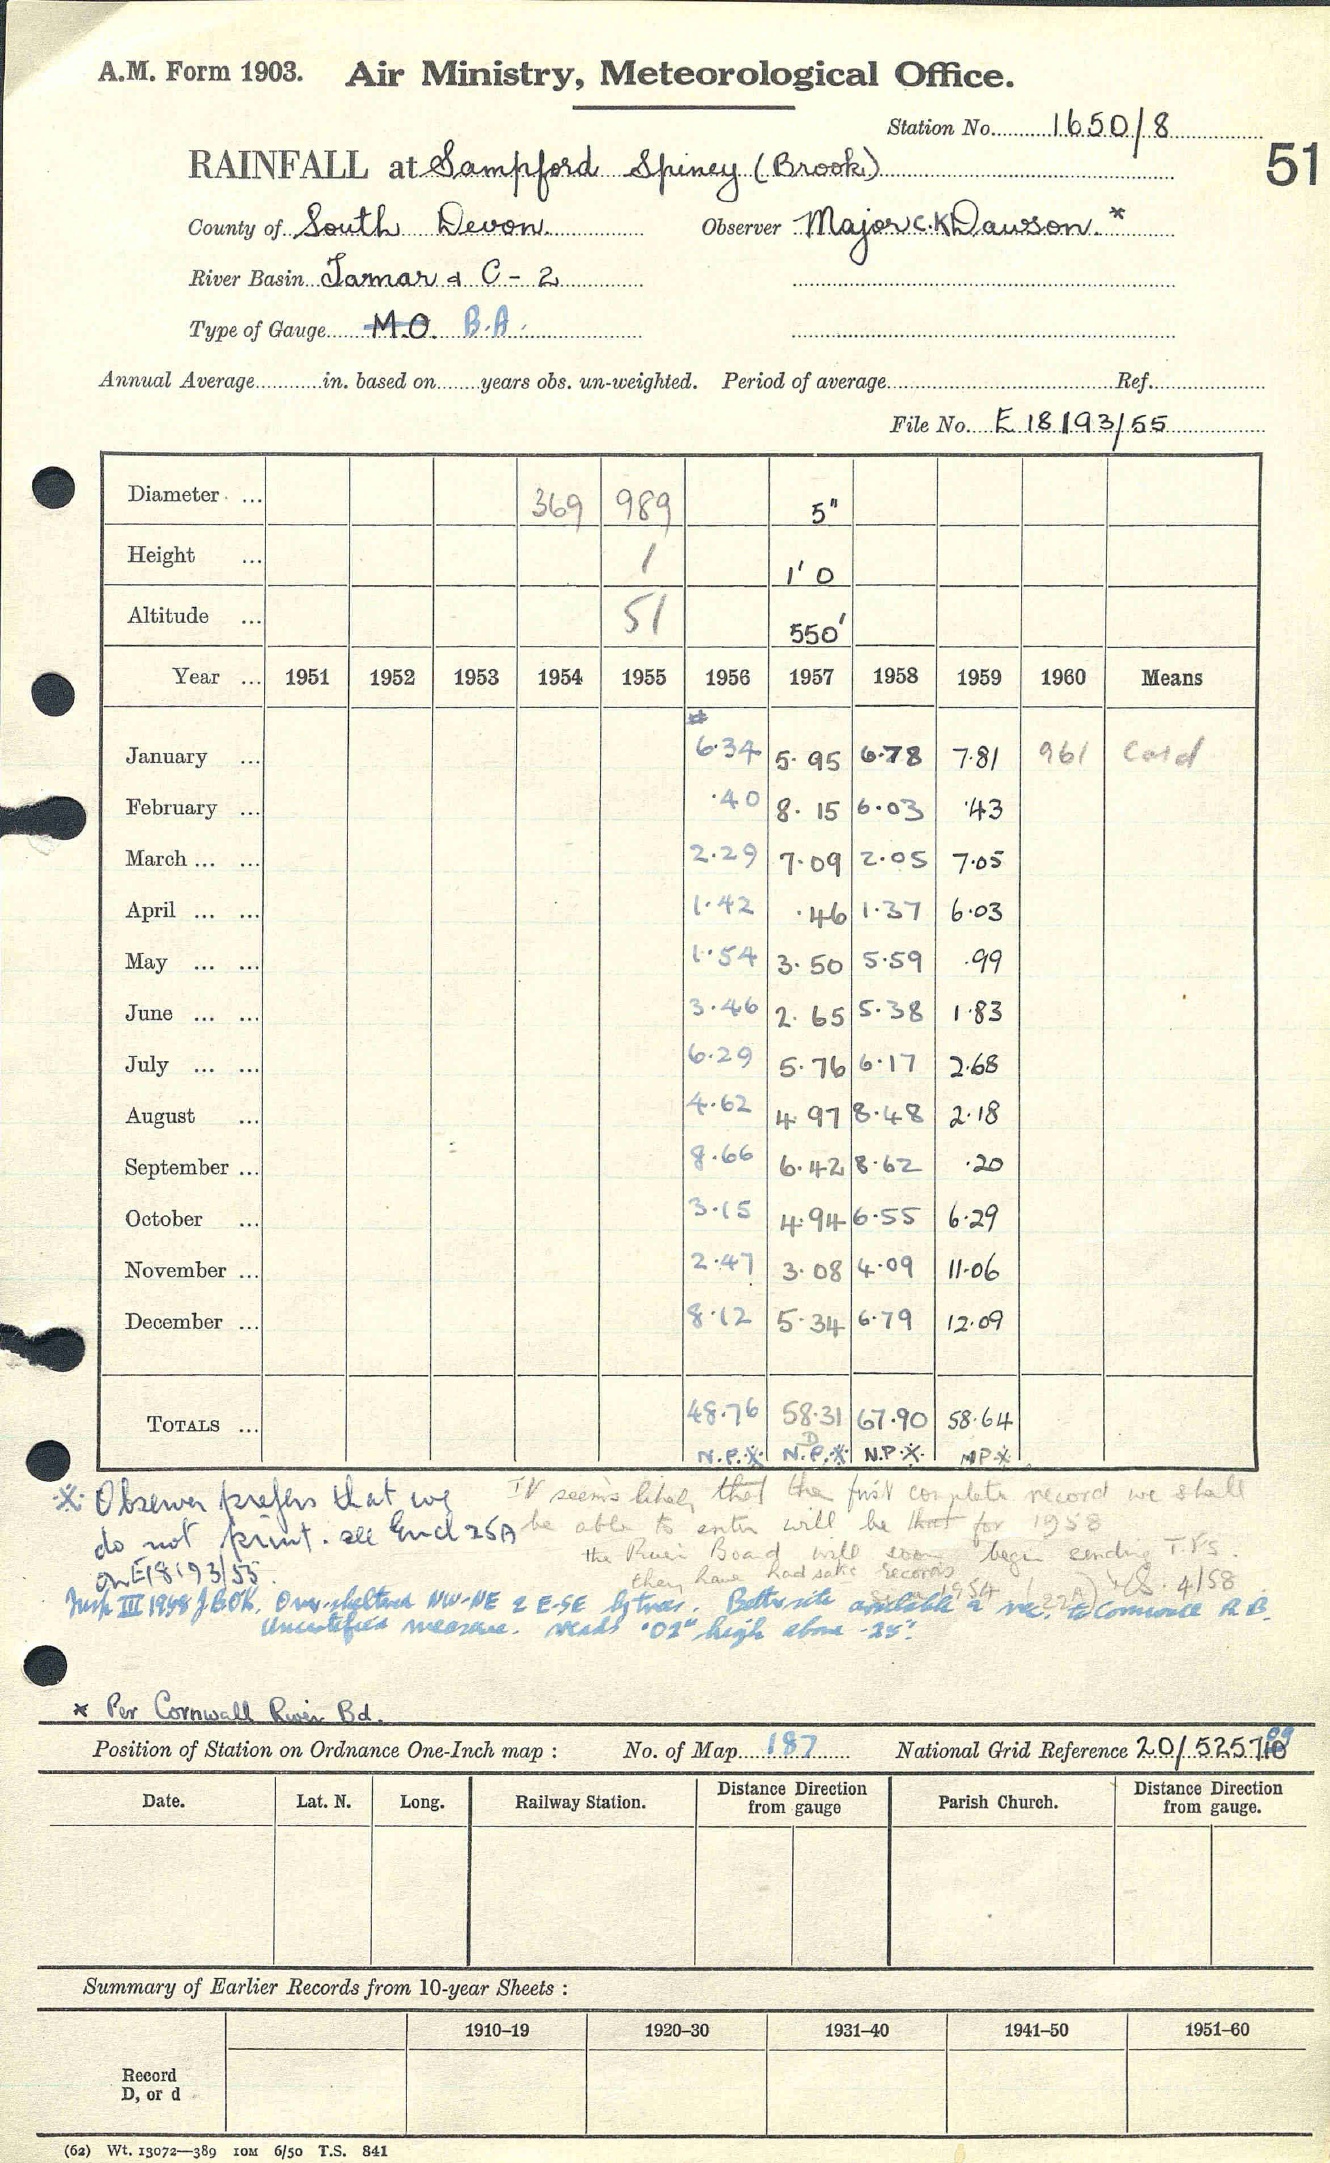 A.M. Form 1903. Air Ministry, Meteorological Office.
Station No. 1650/8
51
RAINFALL at Sampford Spiney (Brook)
County of South Devon. Observer Major C.K. Dawson. *
River Basin Tamar & C - 2
Type of Gauge M.O. B.A.
Annual Average in. based on years obs. un-weighted. Period of average Ref.
File No. E 18193/55
Diameter ... 369 989 5"
Height ... 1 1' 0
Altitude ... 51 550'
Year ... 1951 1952 1953 1954 1955 1956 1957 1958 1959 1960 Means
January ... 6.34 5.95 6.78 7.81 961 Card
February ... .40 8.15 6.03 .43
March ... ... 2.29 7.09 2.05 7.05
April ... ... 1.42 .46 1.37 6.03
May ... ... 1.54 3.50 5.59 .99
June ... ... 3.46 2.65 5.38 1.83
July ... ... 6.29 5.76 6.17 2.68
August ... 4.62 4.97 8.48 2.18
September ... 8.66 6.42 8.62 .20
October ... 3.15 4.94 6.55 6.29
November ... 2.47 3.08 4.09 11.06
December ... 8.12 5.34 6.79 12.09
TOTALS ... 48.76 58.31 67.90 58.64
D
N.P.※ N.P.※ N.P.※ NP※
※ Observer prefers that we
do not print. see Encl 25A
on E18193/55.
It seems likely that the first complete record we shall
be able to enter will be that for 1958
the River Board will soon begin sending
they have had records
since 1954 (22A) 4/58
Insp III 1958 J.BOK. Over-sheltered NW-NE & E-SE by trees. Better site available & rec. to Cornwall R.B.
Uncertified measure. reads .02" high above .25".
* Per Cornwall River Bd.
Position of Station on Ordnance One-Inch map : No. of Map 187 National Grid Reference 20/525710 09
Date. Lat. N. Long. Railway Station. Distance Direction from gauge Parish Church. Distance Direction from gauge.
Summary of Earlier Records from 10-year Sheets :
1910–19 1920–30 1931–40 1941–50 1951–60
Record
D, or d
(62) Wt. 13072—389 10M 6/50 T.S. 841